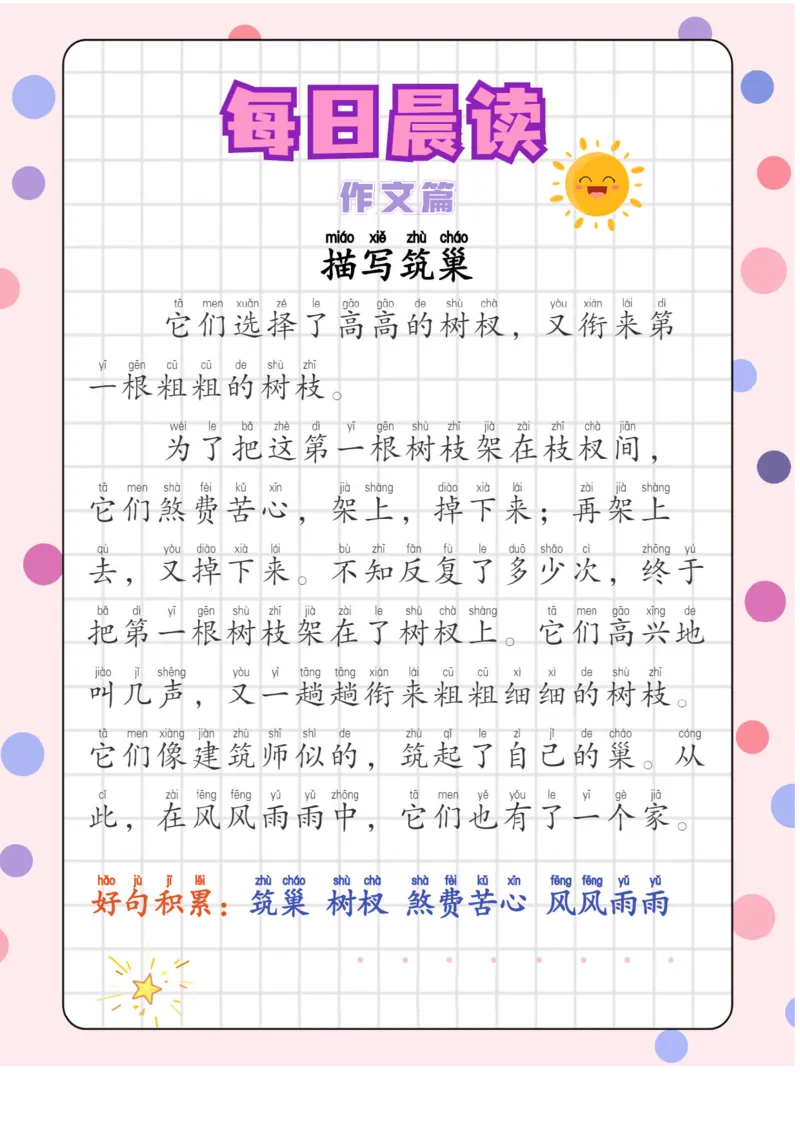 每日晨读
作文篇
miáo xiě zhù cháo
描写筑巢
tā men xuǎn zé le gāo gāo de shù chà yòu xián lái dì
它们选择了高高的树杈，又衔来第
yī gēn cū cū de shù zhī
一根粗粗的树枝。
wéi le bǎ zhè dì yī gēn shù zhī jià zài zhī chà jiān
为了把这第一根树枝架在枝杈间，
tā men shà fèi kǔ xīn jià shàng diào xià lái zài jià shàng
它们煞费苦心，架上，掉下来；再架上
qù yòu diào xià lái bù zhī fǎn fù le duō shǎo cì zhōng yú
去，又掉下来。不知反复了多少次，终于
bǎ dì yī gēn shù zhī jià zài le shù chà shàng tā men gāo xīng de
把第一根树枝架在了树杈上。它们高兴地
jiào jǐ shēng yòu yí tàng tàng xián lái cū cū xì xì de shù zhī
叫几声，又一趟趟衔来粗粗细细的树枝。
tā men xiàng jiàn zhù shī shì de zhù qǐ le zì jǐ de cháo cóng
它们像建筑师似的，筑起了自己的巢。从
cǐ zài fēng fēng yǔ yǔ zhōng tā men yě yǒu le yī gè jiā
此，在风风雨雨中，它们也有了一个家。
hǎo jù jī lěi zhù cháo shù chà shà fèi kǔ xīn fēng fēng yǔ yǔ
好句积累：筑巢 树杈 煞费苦心 风风雨雨